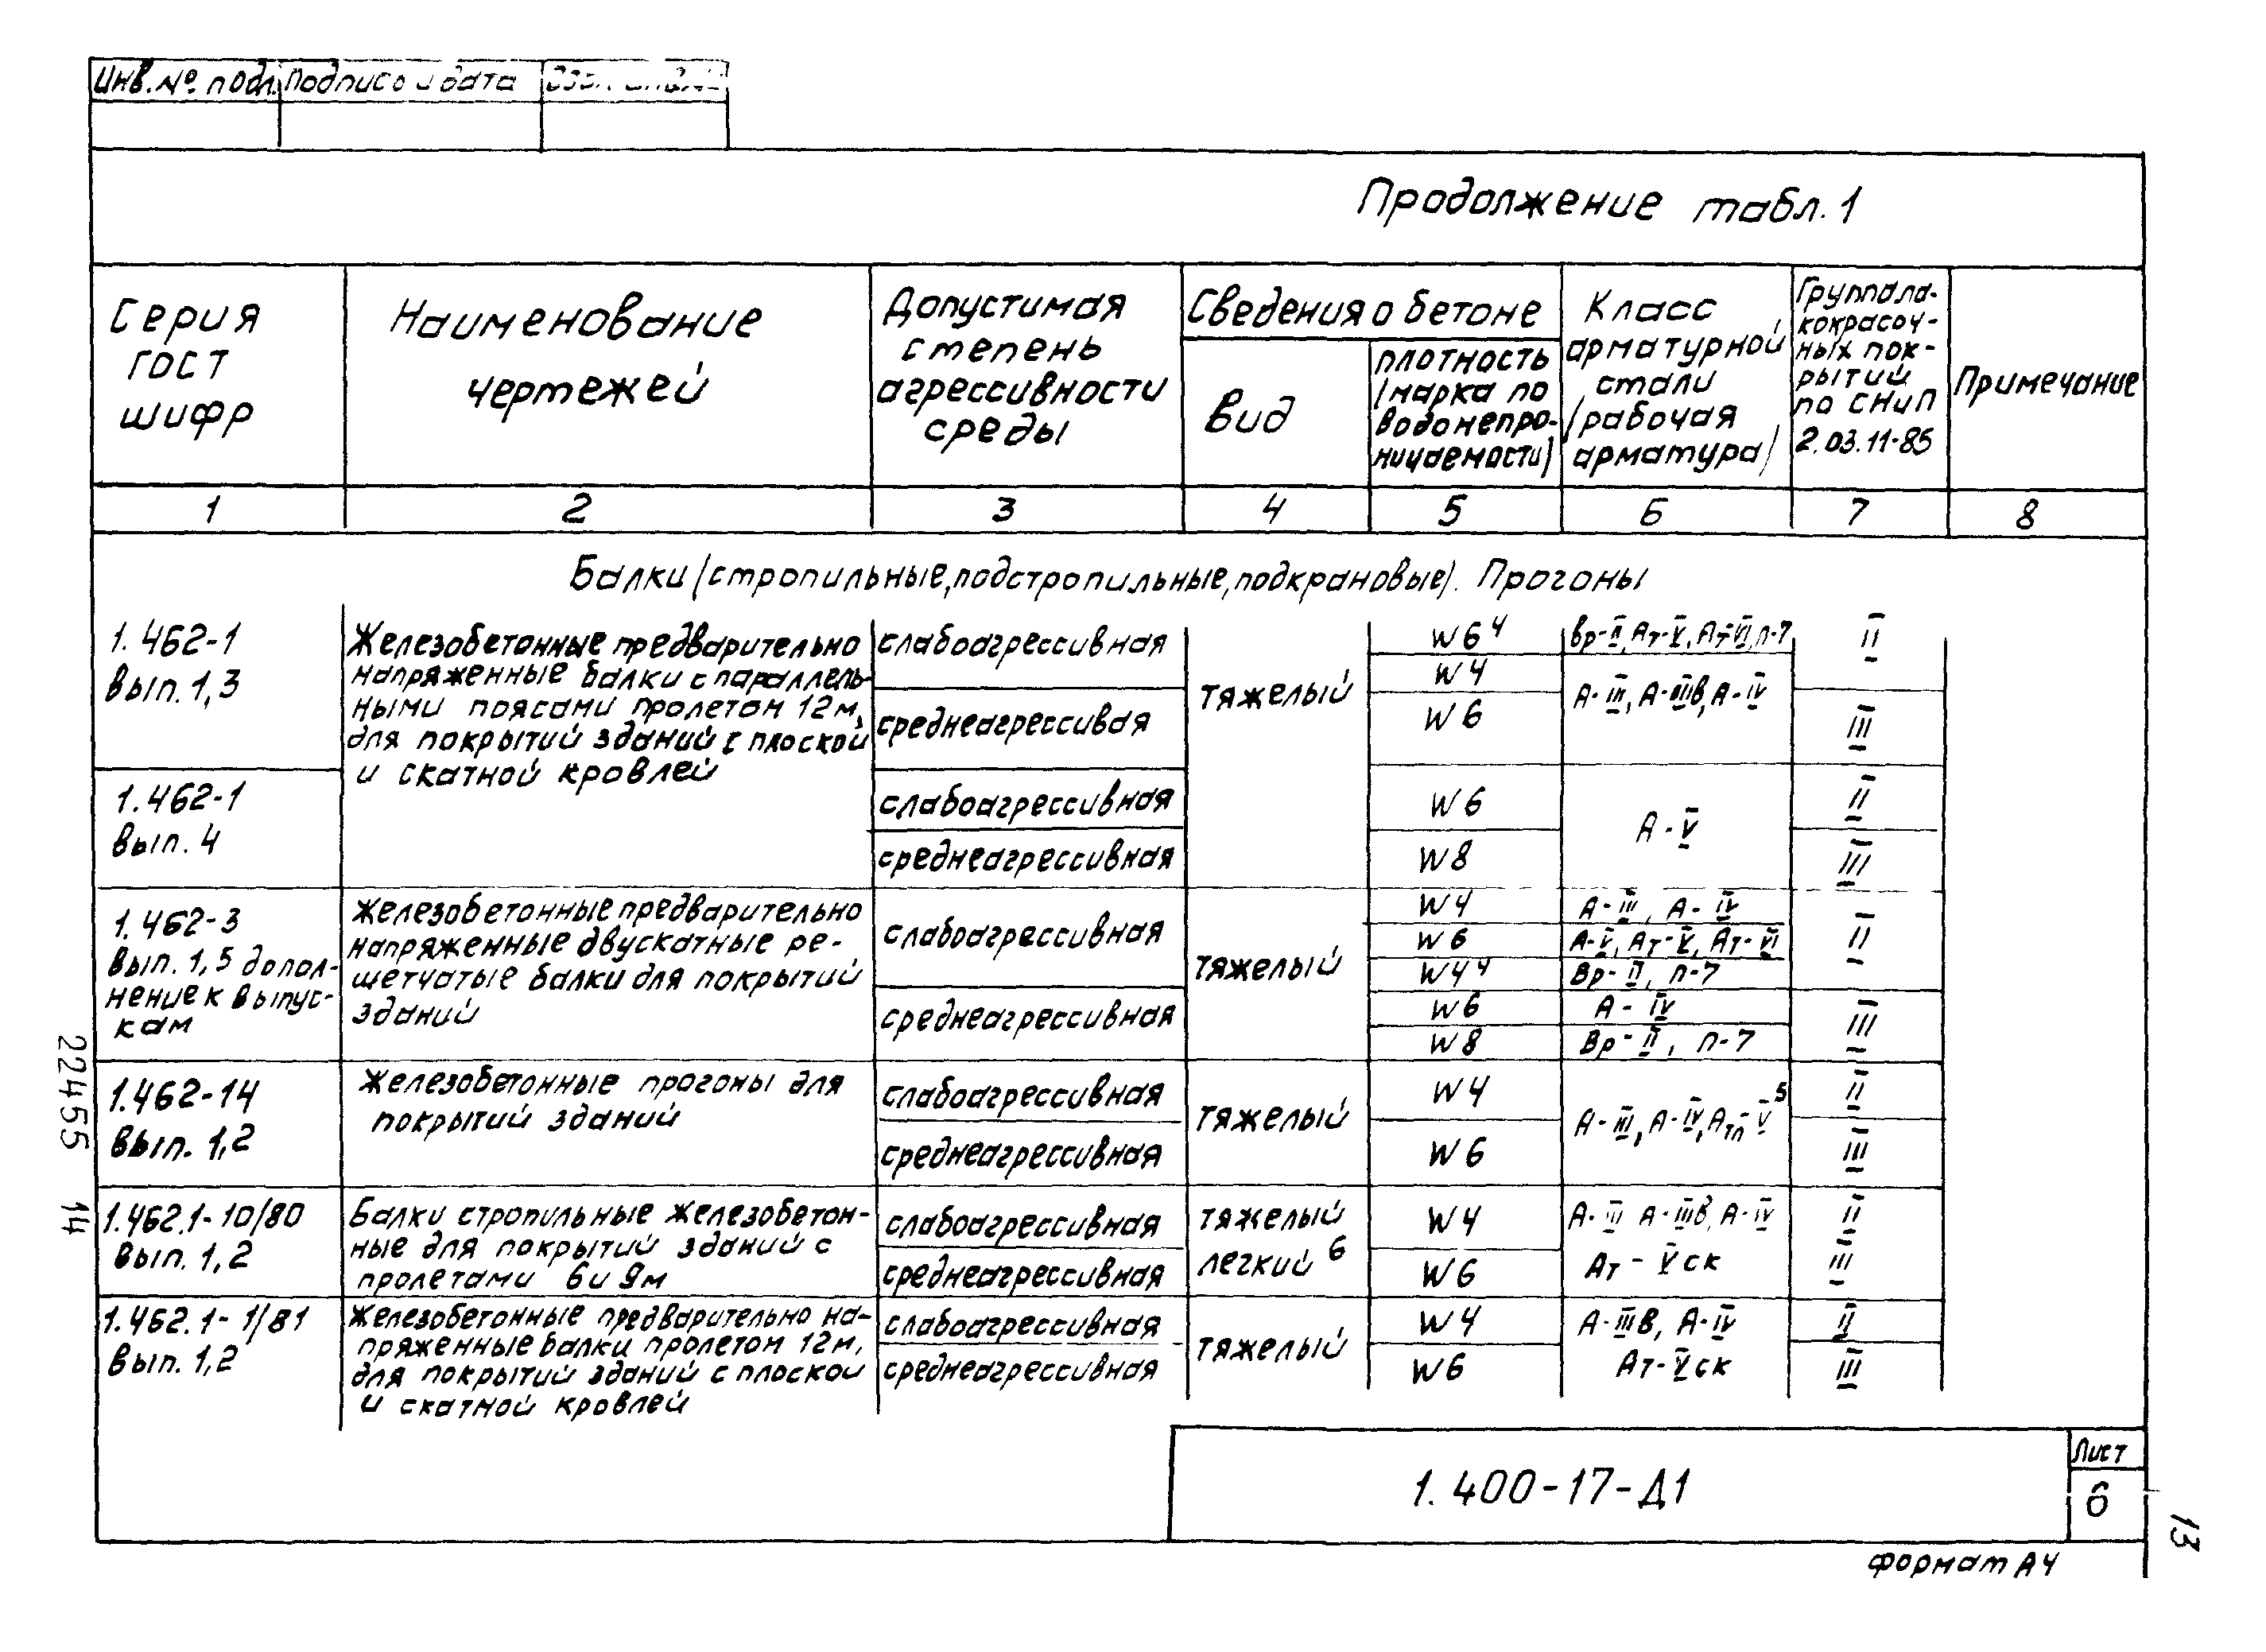 Инв.№ подл. Подпись и дата
Продолжение табл.1
Серия ГОСТ шифр
Наименование чертежей
Допустимая степень агрессивности среды
Сведения о бетоне
Вид
плотность (марка по водонепро-ницаемости)
Класс арматурной стали (рабочая арматура)
Группа ла-кокрасоч-ных пок-рытий по СНиП 2.03.11-85
Примечание
1 2 3 4 5 6 7 8
Балки (стропильные, подстропильные, подкрановые). Прогоны
1.462-1
вып.1,3
Железобетонные предварительно
напряженные балки с параллель-
ными поясами пролетом 12м,
для покрытий зданий с плоской
и скатной кровлей
слабоагрессивная
среднеагрессивая
тяжелый
W6⁴
W4
W6
Вр-II, Ат-V, Ат-VI, П-7
А-III, А-IIIв, А-IV
II
III
1.462-1
вып. 4
слабоагрессивная
среднеагрессивная
W6
W8
А-V
II
III
1.462-3
вып.1,5 допол-
нение к выпус-
кам
Железобетонные предварительно
напряженные двускатные ре-
шетчатые балки для покрытий
зданий
слабоагрессивная
среднеагрессивная
тяжелый
W4
W6
W4⁴
W6
W8
А-III, А-IV
А-V, Ат-V, Ат-VI
Вр-II, П-7
А-IV
Вр-II, П-7
II
III
1.462-14
вып. 1,2
Железобетонные прогоны для
покрытий зданий
слабоагрессивная
среднеагрессивная
тяжелый
W4
W6
А-III, А-IV, Атп-V⁵
II
III
1.462.1-10/80
вып. 1,2
Балки стропильные железобетон-
ные для покрытий зданий с
пролетами 6 и 9м
слабоагрессивная
среднеагрессивная
тяжелый
легкий⁶
W4
W6
А-III А-IIIв, А-IV
Ат-Vск
II
III
1.462.1-1/81
вып. 1,2
Железобетонные предварительно на-
пряженные балки пролетом 12м,
для покрытий зданий с плоской
и скатной кровлей
слабоагрессивная
среднеагрессивная
тяжелый
W4
W6
А-IIIв, А-IV
Ат-Vск
II
III
22455 14
1.400-17-Д1
Лист
6
13
формат А4